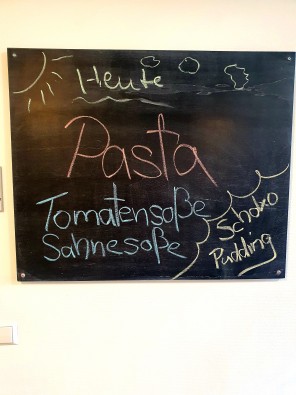 Heute
Pasta
Tomatensoße
Sahnesoße
Schoko
Pudding